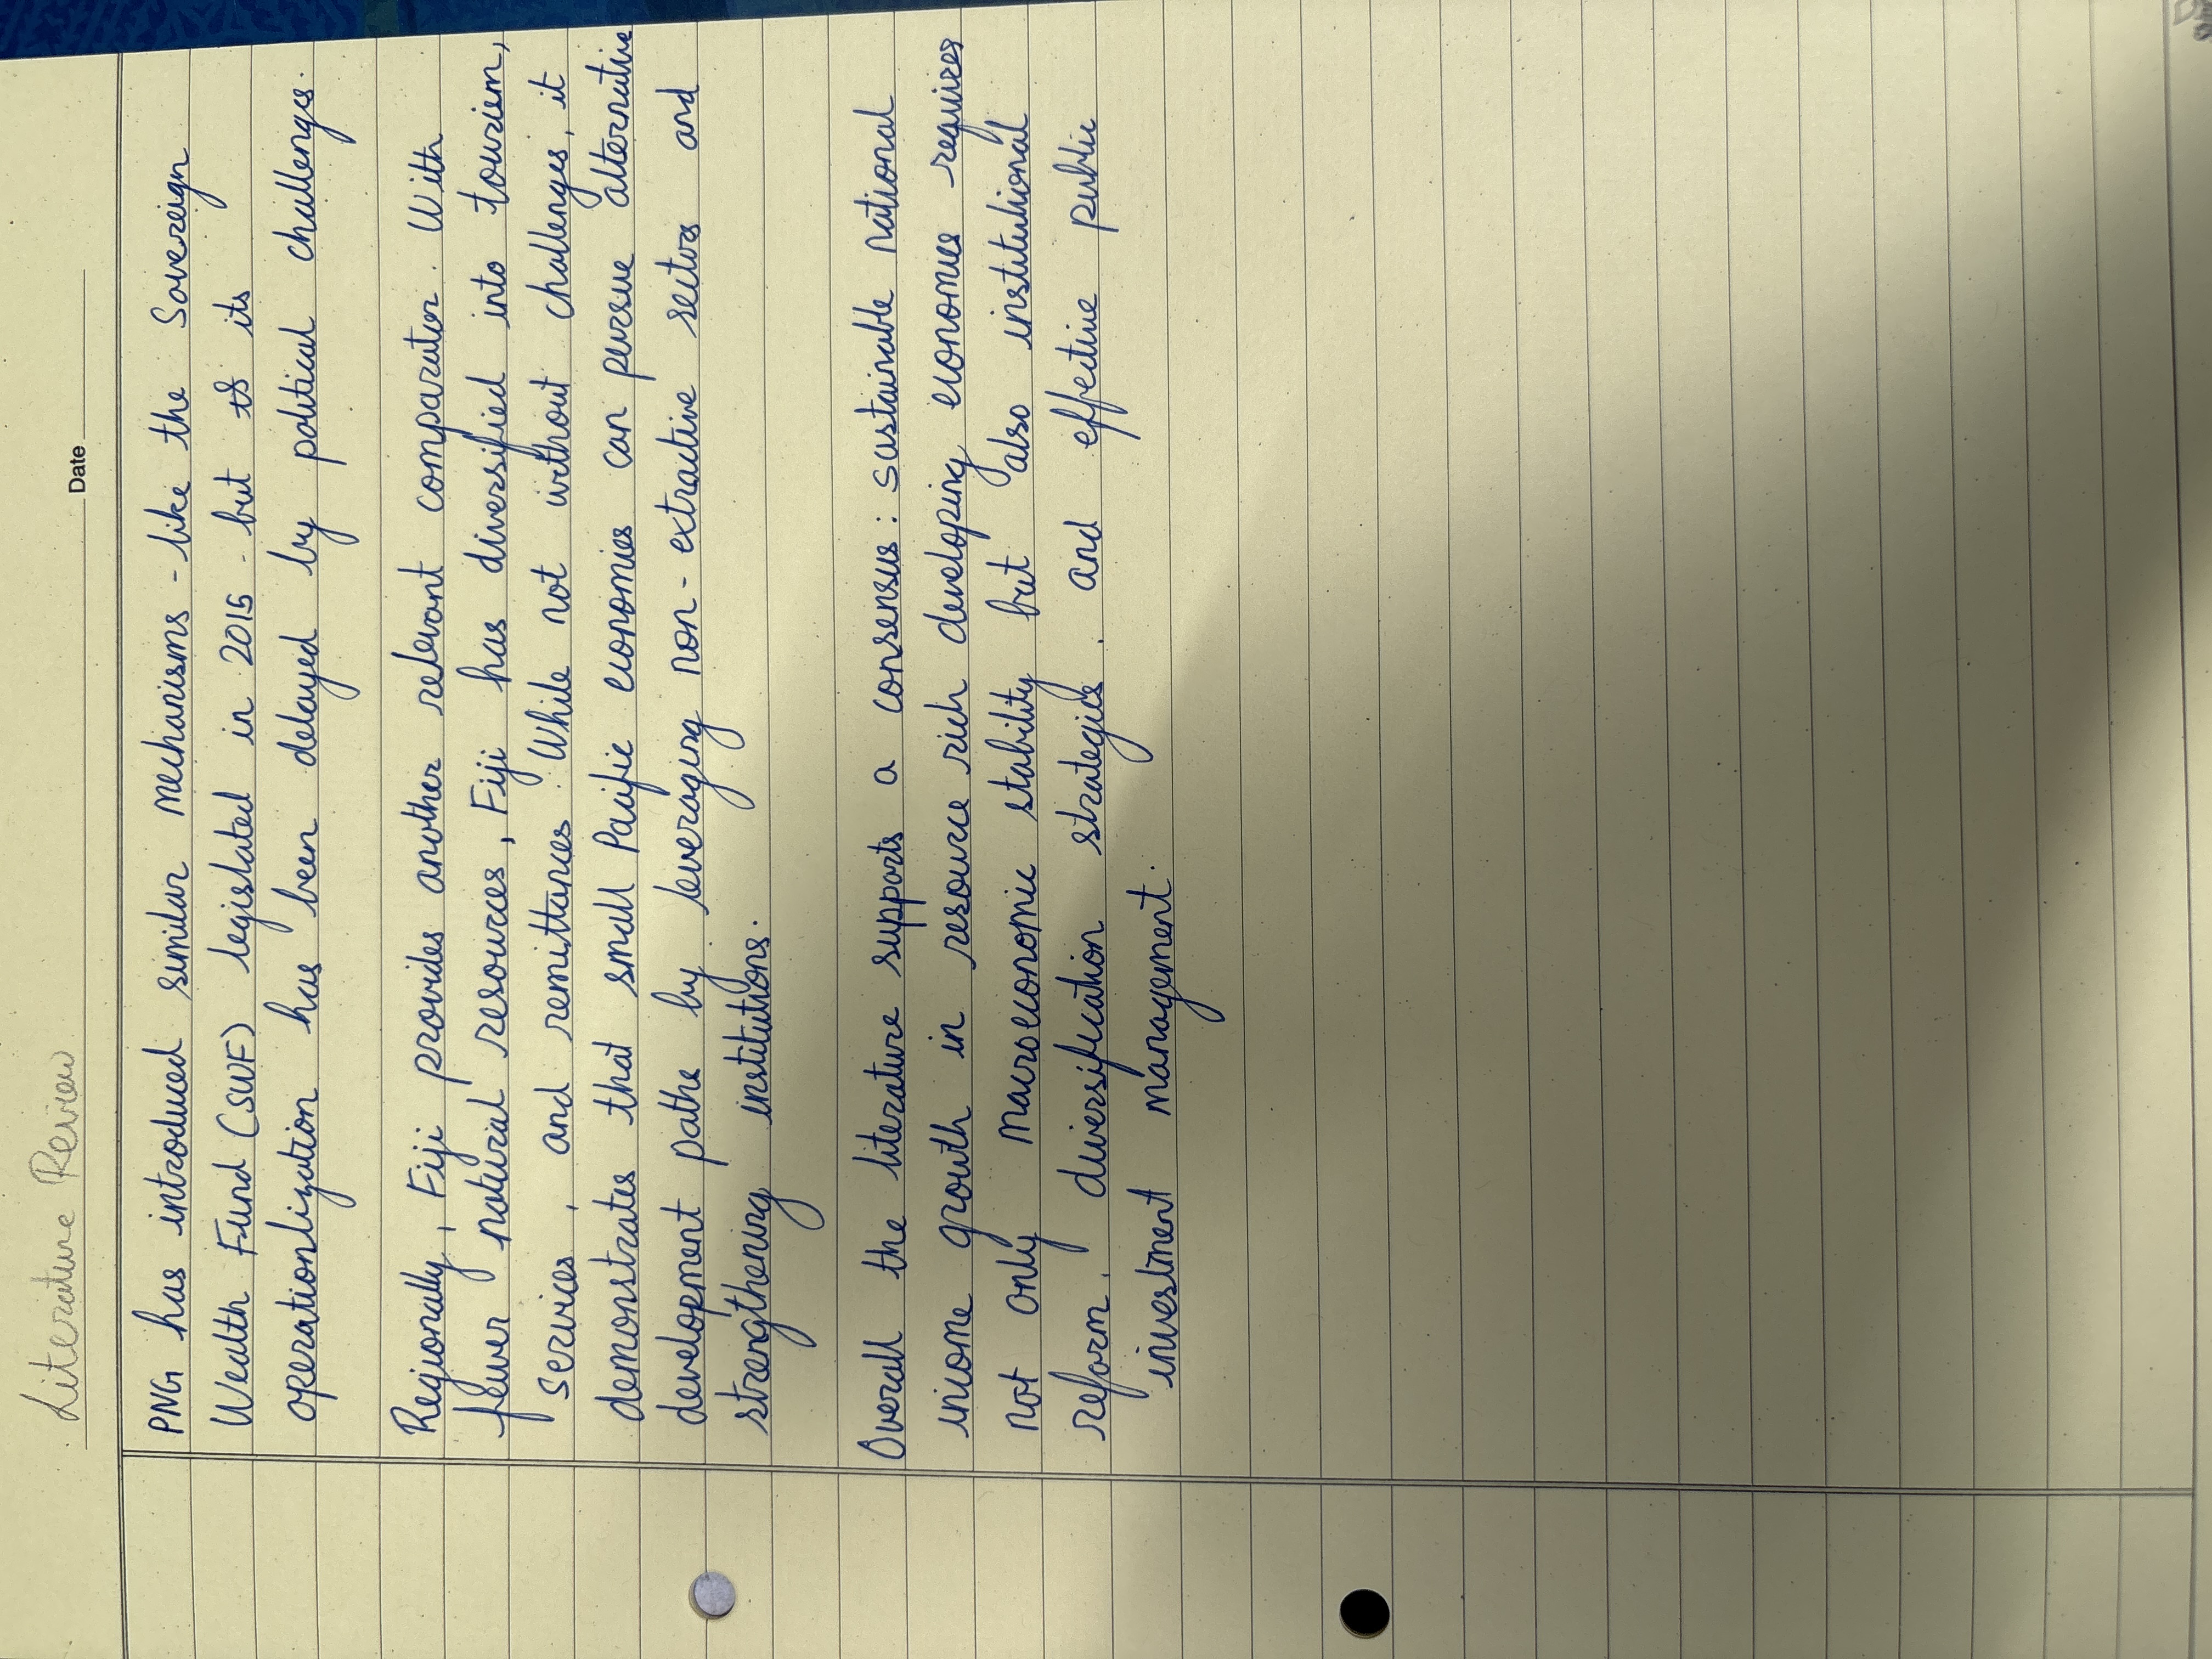 Literature Review
Date
PNG has introduced similar mechanisms - like the Sovereign
Wealth Fund (SWF) legislated in 2015 - but its
operationlization has been delayed by political challenges.
Regionally, Fiji provides another relevant comparator. With
fewer natural resources, Fiji has diversified into tourism,
services, and remittances. While not without challenges, it
demonstrates that small Pacific economies can persue alternative
development paths by leveraging non-extractive sectors and
strengthening institutions.
Overall the literature supports a consensus: sustainable national
income growth in resource rich developing economies requires
not only macroeconomic stability but also institutional
reform, diversification strategies, and effective public
investment management.